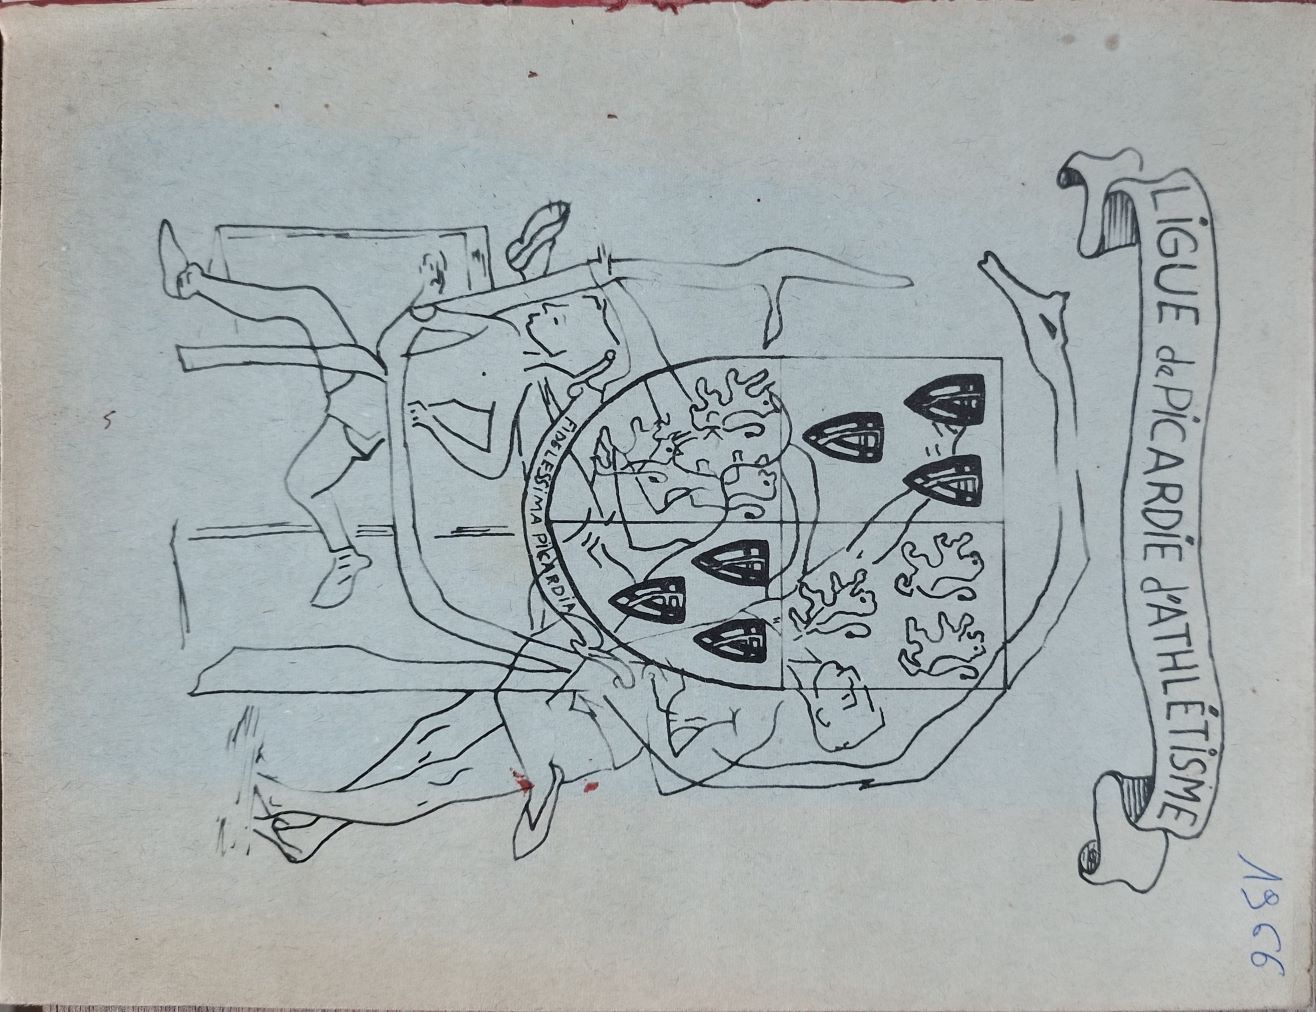 1966
LIGUE de PICARDIE d'ATHLÉTISME
FIDELESSIMA PICARDIA